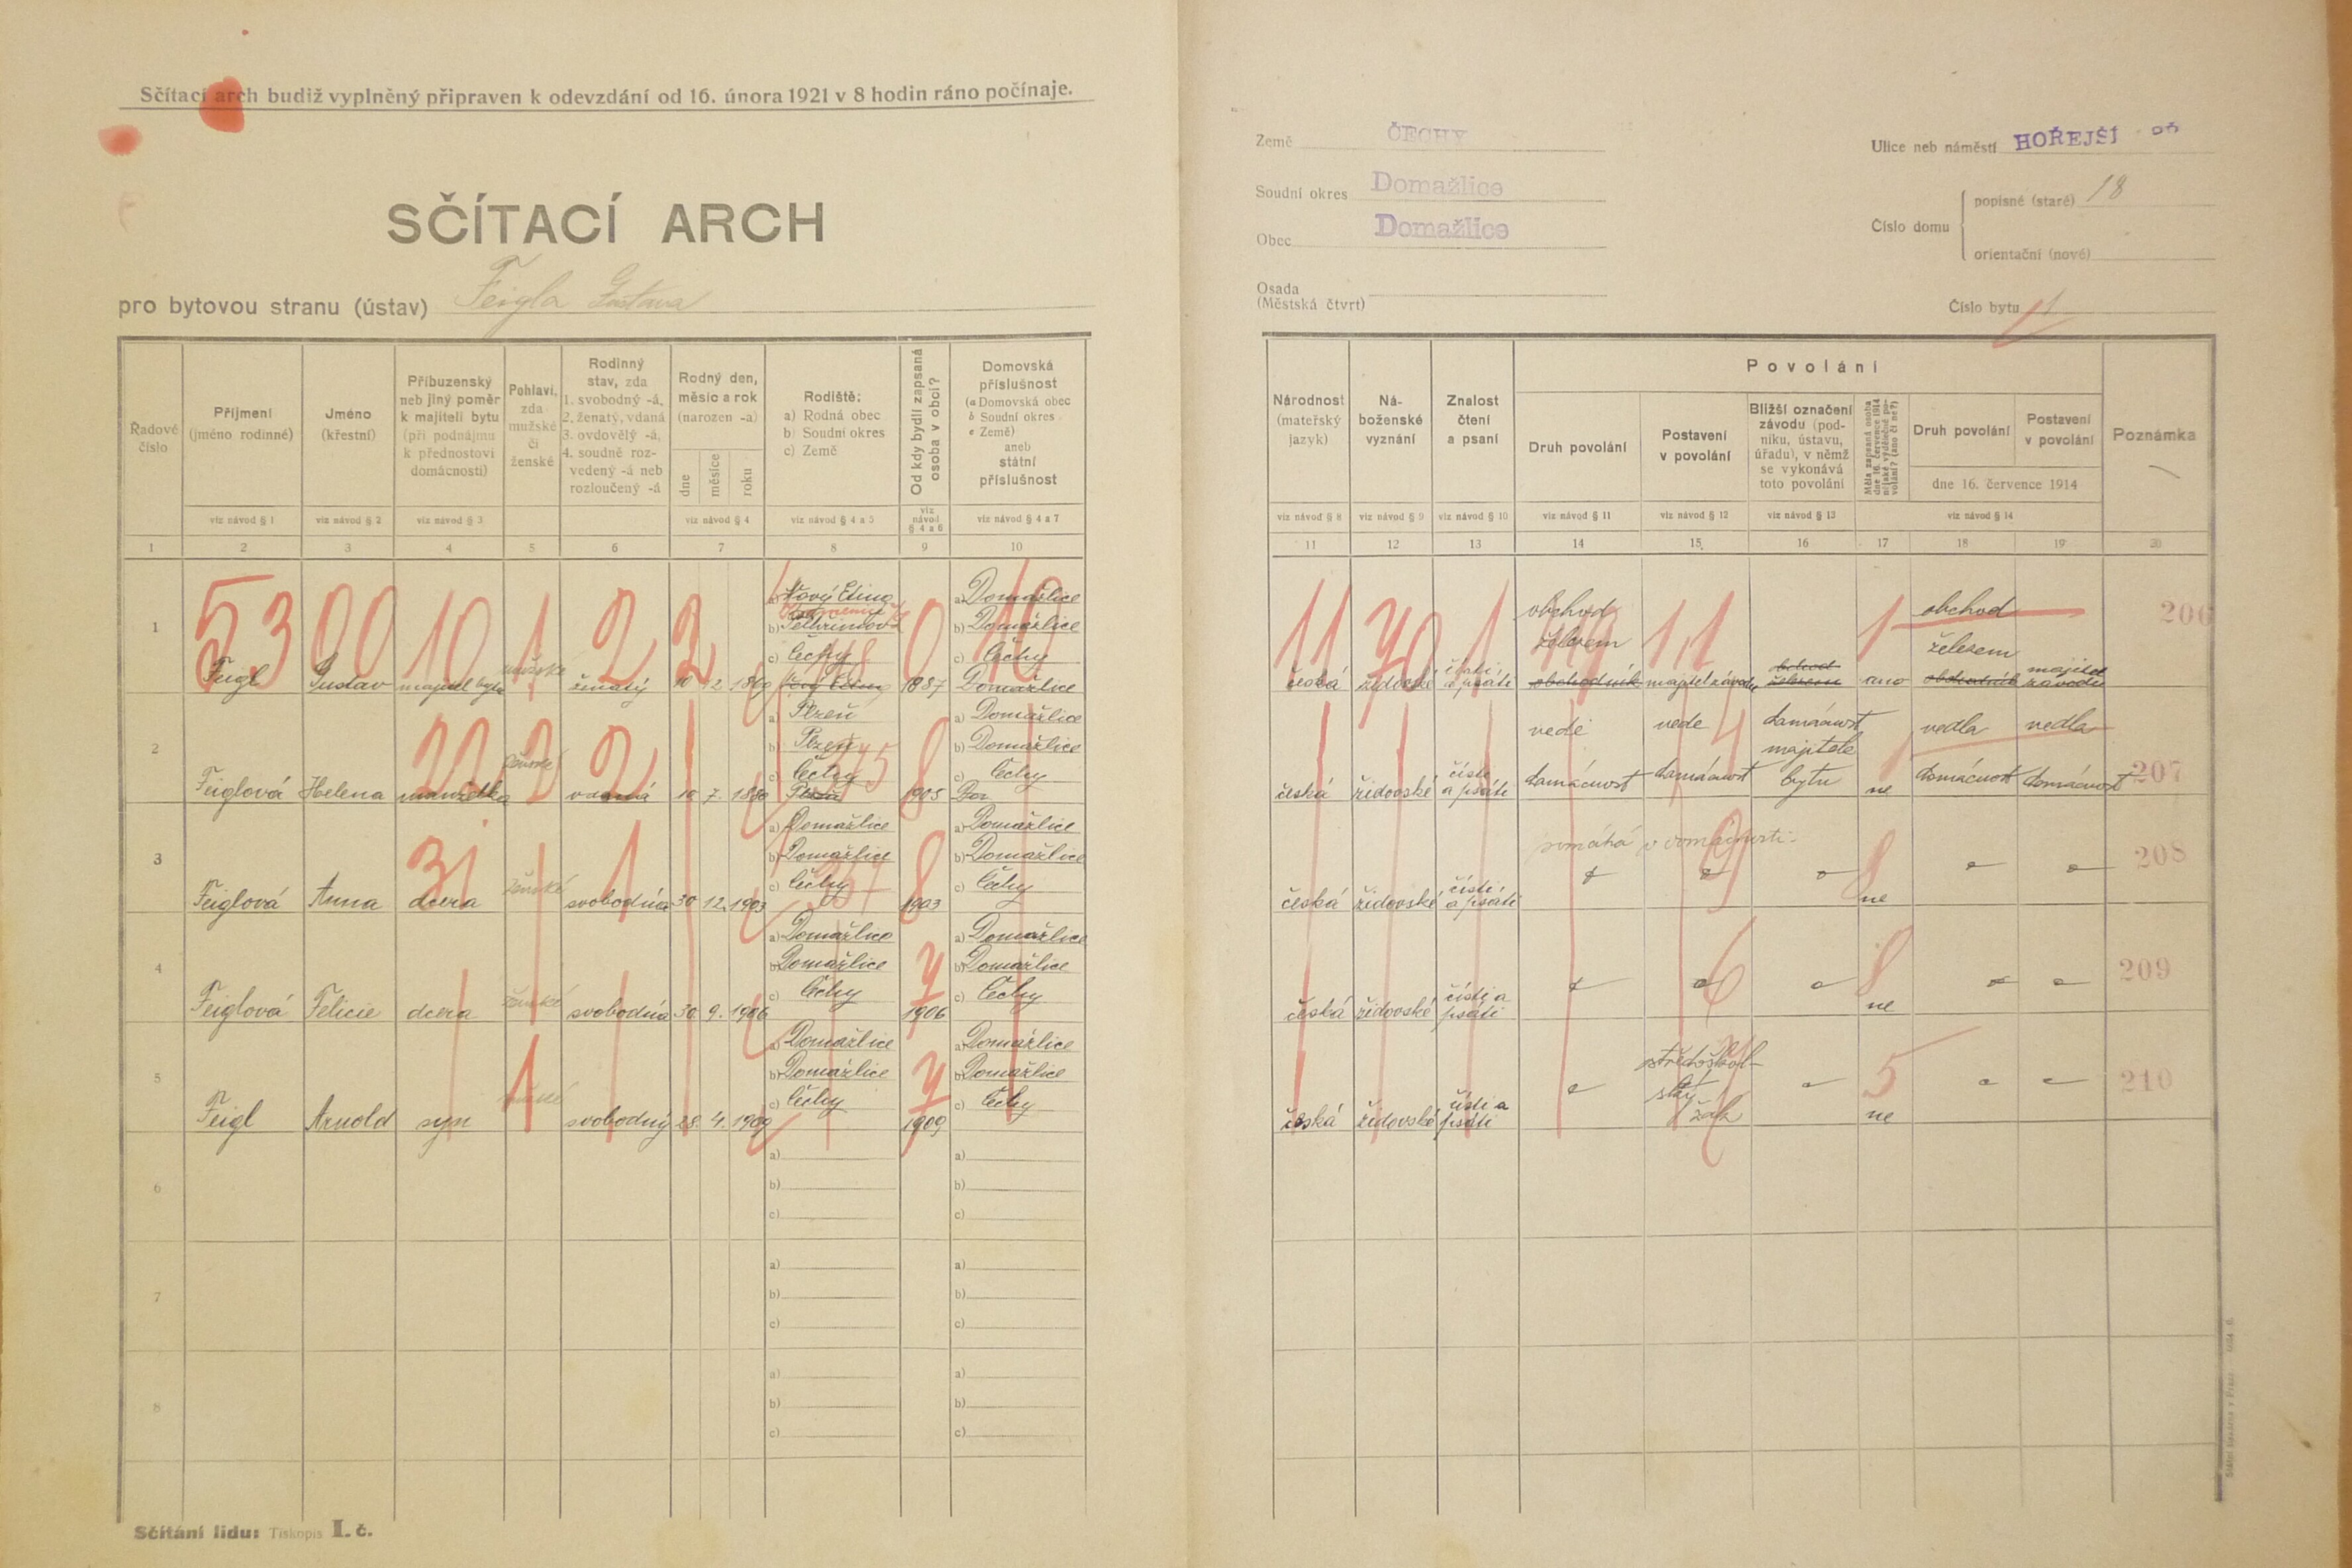 Sčítací arch budiž vyplněný připraven k odevzdání od 16. února 1921 v 8 hodin ráno počínaje.
SČÍTACÍ ARCH
pro bytovou stranu (ústav) Feigla Gustava
Řadové číslo
Příjmení (jméno rodinné)
Jméno (křestní)
Příbuzenský neb jiný poměr k majiteli bytu (při podnájmu k přednostovi domácnosti)
Pohlaví, zda mužské či ženské
Rodinný stav, zda 1. svobodný -á, 2. ženatý, vdaná 3. ovdovělý -á, 4. soudně rozvedený -á neb rozloučený -á
Rodný den, měsíc a rok (narozen -a)
dne měsíce roku
Rodiště: a) Rodná obec b) Soudní okres c) Země
Od kdy bydlí zapsaná osoba v obci?
Domovská příslušnost (a Domovská obec b Soudní okres c Země) aneb státní příslušnost
viz návod § 1 viz návod § 2 viz návod § 3 viz návod § 4 viz návod § 4 a 5 viz návod § 4 a 6 viz návod § 4 a 7
1 2 3 4 5 6 7 8 9 10
1 Feigl Gustav majitel bytu mužské ženatý 10 2 1860 Čechy 1887 a) Domažlice b) Domažlice c) Čechy Domažlice
2 Feiglová Helena manželka ženské vdaná 10 7. 1880 a) Plzeň b) Plzeň c) Čechy 1903 a) Domažlice b) Domažlice c) Čechy
3 Feiglová Anna dcera ženské svobodná 30 12. 1903 a) Domažlice b) Domažlice c) Čechy 1903 a) Domažlice b) Domažlice c) Čechy
4 Feiglová Felicie dcera ženské svobodná 30. 9. 1906 a) Domažlice b) Domažlice c) Čechy 1906 a) Domažlice b) Domažlice c) Čechy
5 Feigl Arnold syn svobodný 28. 4. 1909 a) Domažlice b) Domažlice c) Čechy 1909 a) Domažlice b) Domažlice c) Čechy
6 a) b) c) a) b) c)
7 a) b) c) a) b) c)
8 a) b) c) a) b) c)
Sčítání lidu: Tiskopis I. č.
Země ČECHY
Soudní okres Domažlice
Obec Domažlice
Osada (Městská čtvrt)
Ulice neb náměstí HOŘEJŠÍ
Číslo domu
popisné (staré) 18
orientační (nové)
Číslo bytu 1
Národnost (mateřský jazyk)
Náboženské vyznání
Znalost čtení a psaní
Povolání
Druh povolání
Postavení v povolání
Bližší označení závodu (podniku, ústavu, úřadu), v němž se vykonává toto povolání
Měla zapsaná osoba dne 16. července 1914 nějaké výdělečné povolání? (ano či ne?)
Druh povolání
Postavení v povolání
dne 16. července 1914
Poznámka
viz návod § 8 viz návod § 9 viz návod § 10 viz návod § 11 viz návod § 12 viz návod § 13 viz návod § 14
11 12 13 14 15 16 17 18 19 20
česká židovské čísti a psáti obchod železem obchodník majitel závodu obchod železem ano obchod železem obchodník majitel závodu 206
česká židovské čísti a psáti vede domácnost vede domácnost domácnost majitele bytu ne vedla domácnost vedla domácnost 207
česká židovské čísti a psáti pomáhá v domácnosti ne 208
česká židovské čísti a psáti ne 209
česká židovské čísti a psáti středoškolský žák ne 210